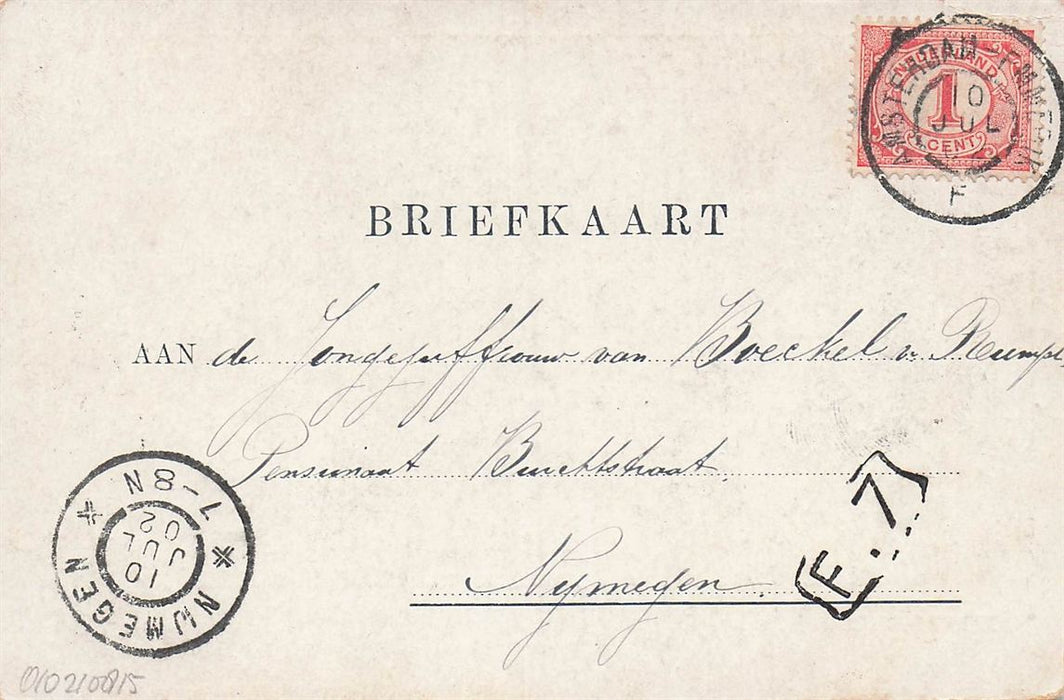 AMSTERDAM-EMMERIK
10
JUL
F
NEDERLAND
1
CENT
BRIEFKAART
AAN de Jongejuffrouw van Boeckel v. Rumpt
Pensionaat Burchtstraat
Nymegen
F. 7
7-8N
10
JUL
02
NIJMEGEN
010210815